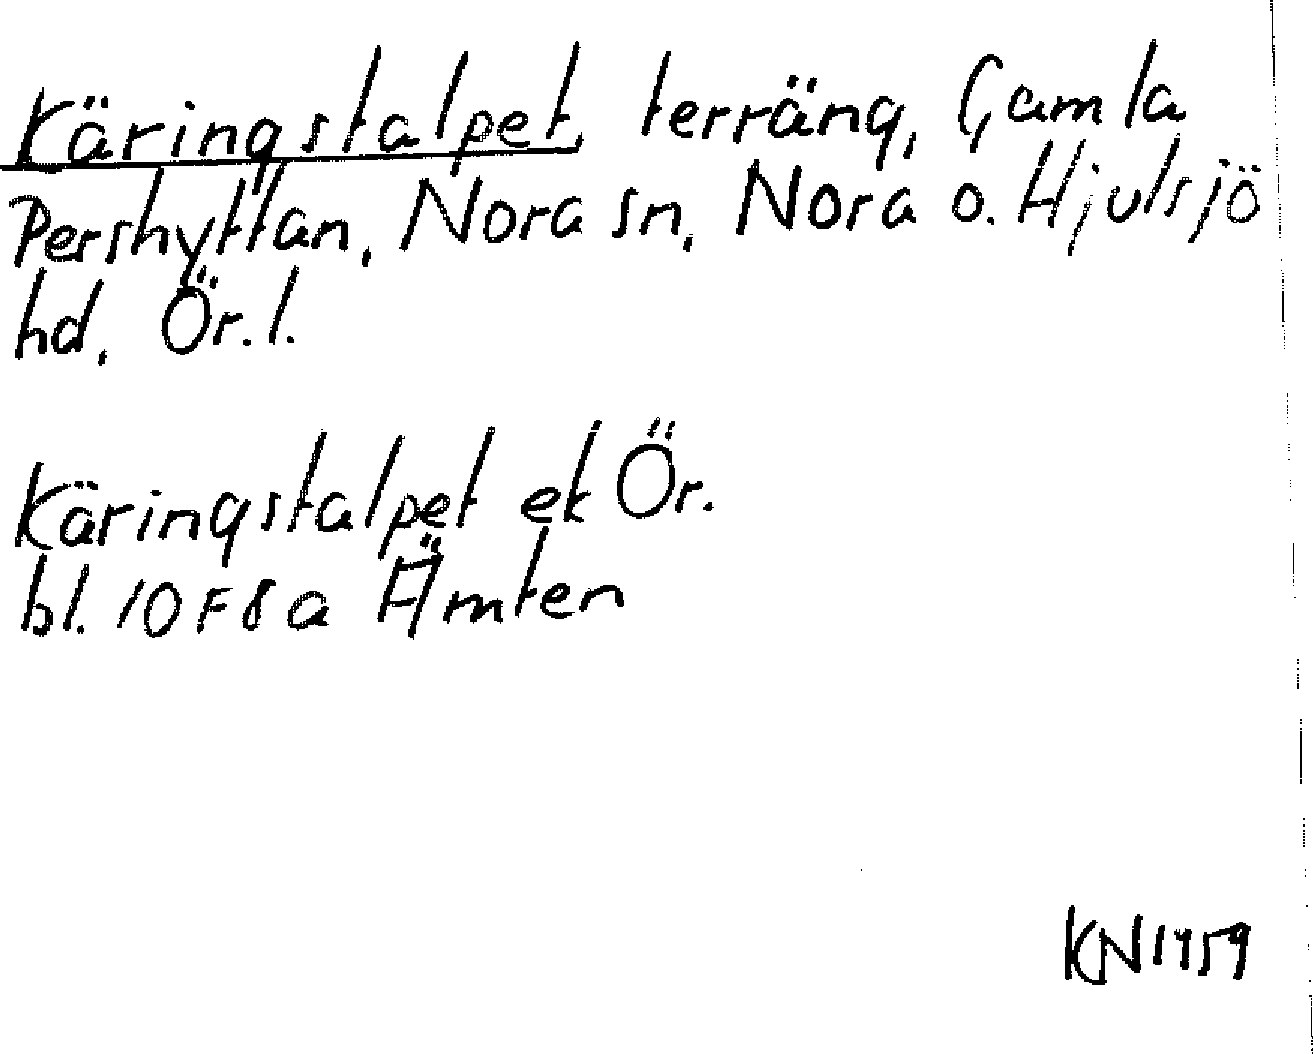 Käringstalpet, terräng, Gamla
Pershyttan, Nora sn, Nora o. Hjulsjö
hd, Ör. l.
Käringstalpet ek Ör.
bl. 10F8a Ämten
KN1959